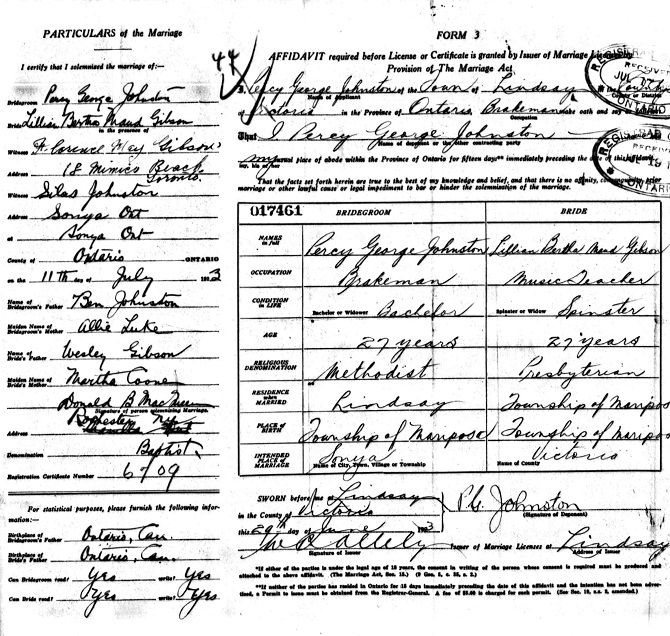 PARTICULARS of the Marriage
I certify that I solemnized the marriage of:—
Bridegroom Percy George Johnston
Bride Lillian Bertha Maud Gibson
in the presence of
Witness Florence May Gibson
Address 18 Mimico Beach
Toronto.
Witness Silas Johnston
Address Sonya Ont
at Sonya Ont
County of Ontario ONTARIO
on the 11th day of July 1923
Name of Bridegroom's Father Ben Johnston
Maiden Name of Bridegroom's Mother Allie Luke
Name of Bride's Father Wesley Gibson
Maiden Name of Bride's Mother Martha Coone
Donald B
Signature of person solemnizing Marriage.
Address Rochester N.Y.
Denomination Baptist
Registration Certificate Number 6709
For statistical purposes, please furnish the following information:—
Birthplace of Bridegroom's Father Ontario, Can.
Birthplace of Bride's Father Ontario, Can.
Can Bridegroom read? Yes write? Yes
Can Bride read? Yes write? Yes
44
FORM 3
AFFIDAVIT required before License or Certificate is granted by Issuer of Marriage Licenses by
Provision of The Marriage Act
I, Percy George Johnston of the Town of Lindsay in the County
Name of Applicant County or District
of Victoria in the Province of Ontario, Brakeman make oath and say
Occupation
That I Percy George Johnston
Name of deponent or the other contracting party
my usual place of abode within the Province of Ontario for fifteen days** immediately preceding the date of this
my, his or her
That the facts set forth herein are true to the best of my knowledge and belief, and that there is no affinity, consanguinity, prior
marriage or other lawful cause or legal impediment to bar or hinder the solemnization of the marriage.
REGISTRAR
RECEIVED
JUL
ONTARIO
REGISTRAR
RECEIVED
ONTARIO
017461 BRIDEGROOM BRIDE
NAMES in full Percy George Johnston Lillian Bertha Maud Gibson
OCCUPATION Brakeman Music Teacher
CONDITION in LIFE Bachelor or Widower Bachelor Spinster or Widow Spinster
AGE 27 years 27 years
RELIGIOUS DENOMINATION Methodist Presbyterian
RESIDENCE when MARRIED Lindsay Township of Mariposa
PLACE OF BIRTH Township of Mariposa Township of Mariposa
INTENDED PLACE OF MARRIAGE Sonya Victoria
Name of City, Town, Village or Township Name of County
SWORN before me at Lindsay
in the County of Victoria
this 29th day of June 1923
P.G. Johnston
(Signature of Deponent)
Signature of Issuer
Issuer of Marriage Licenses at Lindsay
Address of Issuer
*If either of the parties is under the legal age of 18 years, the consent in writing of the person whose consent is required must be produced and
attached to the above affidavit. (The Marriage Act, Sec. 15.)
**If neither of the parties has resided in Ontario for 15 days immediately preceding the date of this affidavit and the intention has not been advertised,
a Permit to issue must be obtained from the Registrar-General. A fee of $5.00 is charged for each permit.